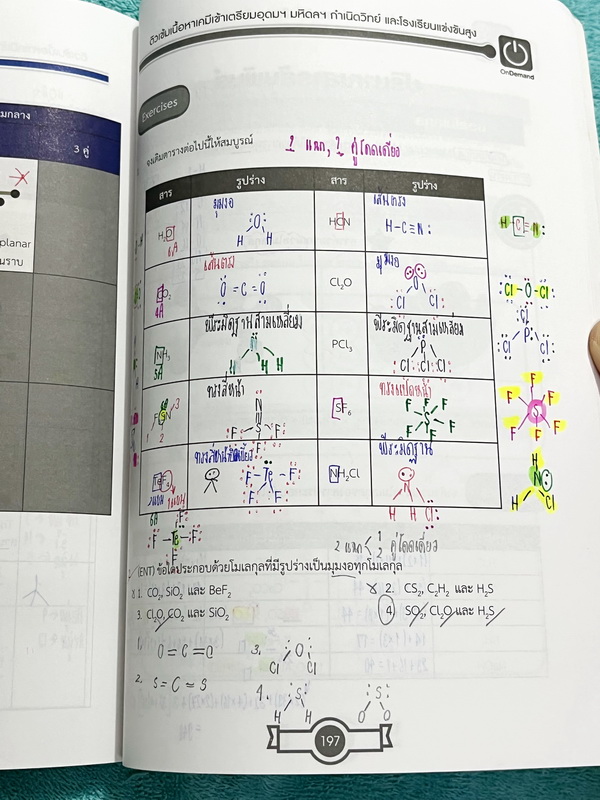 ติวเข้มเนื้อหาเคมีเข้าเตรียมอุดมฯ มหิดลฯ กำเนิดวิทย์ และโรงเรียนแข่งขันสูง
OnDemand
Exercises
มกลาง
3 คู่
planar
นราบ
จงเติมตารางต่อไปนี้ให้สมบูรณ์
2 แขน, 2 คู่โดดเดี่ยว
สาร รูปร่าง สาร รูปร่าง
H₂O 6A มุมงอ O H H HCN เส้นตรง H-C≡N: H C N:
CO₂ 4A เส้นตรง O = C = O Cl₂O มุมงอ O Cl Cl Cl-O-Cl:
NH₃ 5A พีระมิดฐานสามเหลี่ยม H H PCl₃ พีระมิดฐานสามเหลี่ยม P Cl Cl Cl Cl P Cl Cl
1 2 3 ทรงสี่หน้า N S F F F SF₆ ทรงแปดหน้า F F F S F F F F F F S F F F
TeF₄ 6A F-Te-F F F NH₂Cl พีระมิดฐาน H H Cl H N H Cl
F-Te-F
F
2 แขน < 1, 2 คู่โดดเดี่ยว
(ENT) ข้อใดประกอบด้วยโมเลกุลที่มีรูปร่างเป็นมุมงอทุกโมเลกุล
x 1. CO₂, SiO₂ และ BeF₂ x 2. CS₂, C₂H₂ และ H₂S
3. Cl₂O, CO₂ และ SiO₂ 4. SO₂, Cl₂O และ H₂S
1. O = C = O 3. O Cl Cl
2. S = C = S 4. S H H S O O
197